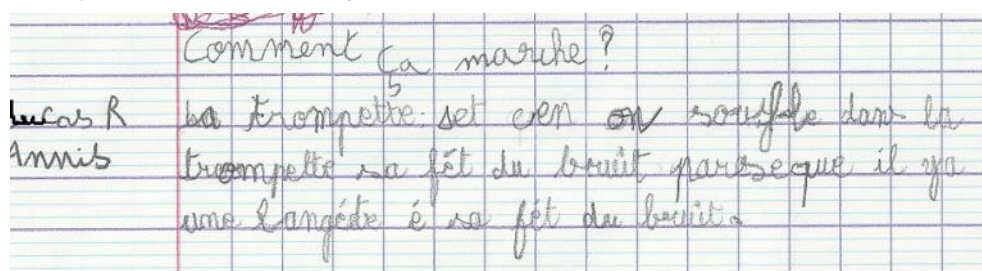 Comment ça marche ?
Lucas R La trompette: set cen on soufle dans la
Annis trompette sa fét du bruit parseque il ya
une langéte é sa fét du bruit.